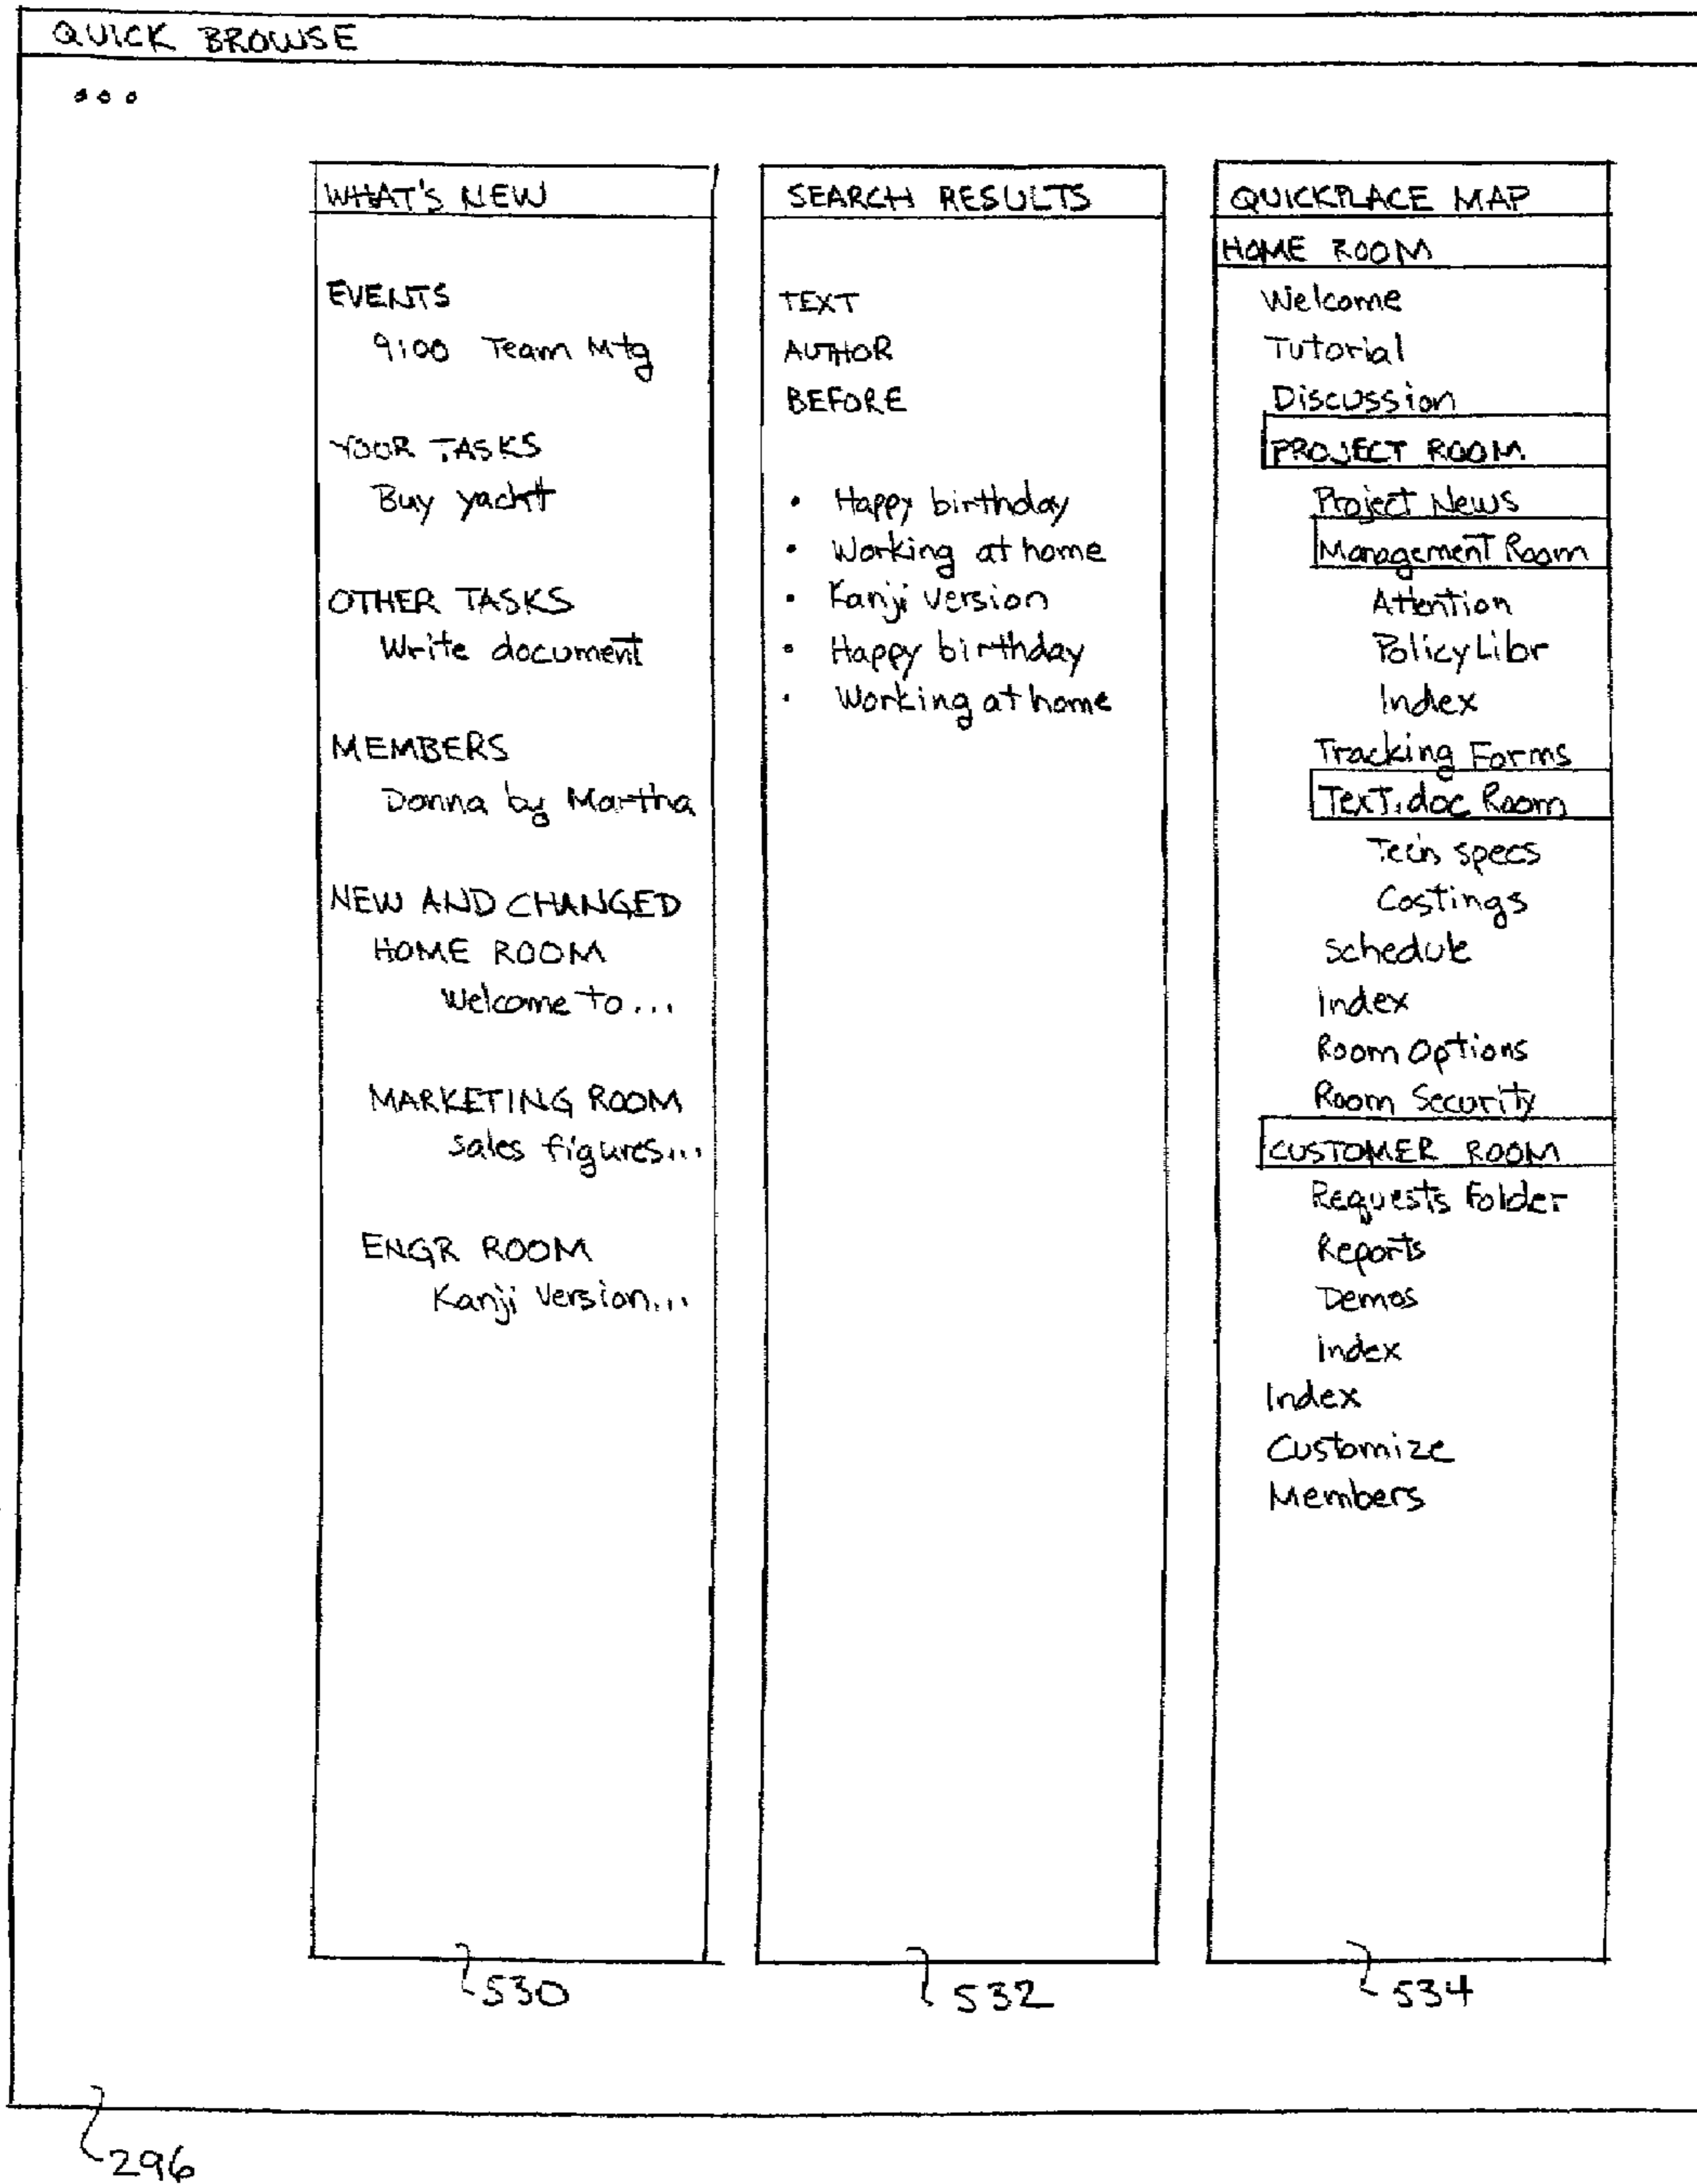 QUICK BROWSE
...
WHAT'S NEW
EVENTS
9:00 Team Mtg
YOUR TASKS
Buy yacht
OTHER TASKS
Write document
MEMBERS
Donna by Martha
NEW AND CHANGED
HOME ROOM
Welcome to...
MARKETING ROOM
Sales figures...
ENGR ROOM
Kanji Version...
530
SEARCH RESULTS
TEXT
AUTHOR
BEFORE
• Happy birthday
• Working at home
• Kanji version
• Happy birthday
• Working at home
532
QUICKPLACE MAP
HOME ROOM
Welcome
Tutorial
Discussion
PROJECT ROOM
Project News
Management Room
Attention
Policy Libr
Index
Tracking Forms
Text.doc Room
specs
Costings
Schedule
Index
Room Options
Room Security
CUSTOMER ROOM
Requests Folder
Reports
Demos
Index
Index
Customize
Members
534
296